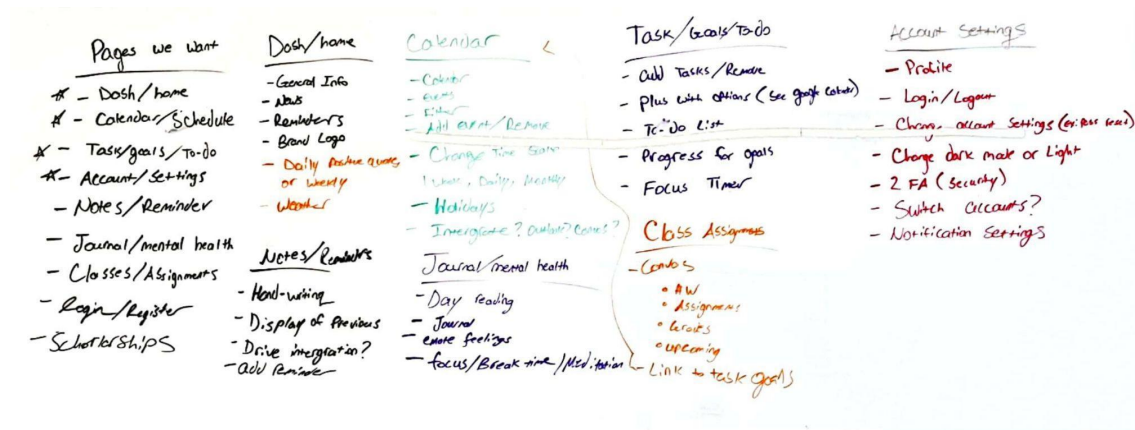 Pages we want
* - Dash/home
* - Calendar/Schedule
* - Task/goals/To-do
* - Account/Settings
- Notes/Reminder
- Journal/mental health
- Classes/Assignments
- Login/Register
- Schorlarships
Dash/home
- General Info
- News
- Reminders
- Brand Logo
- Daily Positive quotes
or Weekly
- Weather
Notes/Reminders
- Hand-writing
- Display of Previous
- Drive intergration?
- add Reminder
Calendar
- Calendar
- Events
- Add event/Remove
- Change Time
Daily, Monthly
- Holidays
- Intergrate? Outlook? Canvas?
Journal/mental health
- Day reading
- Journal
- emote feelings
- focus/Break time/Meditation
Task/Goals/To-do
- add Tasks/Remove
- Plus with options (see google
- To-do List
- Progress for goals
- Focus Timer
Class Assignments
- Canvas
• Assignments
• upcoming
- Link to task goals
Account Settings
- Profile
- Login/Logout
- Change account settings (ex: Pass reset)
- Change dark mode or Light
- 2 FA (Security)
- Switch accounts?
- Notification Settings